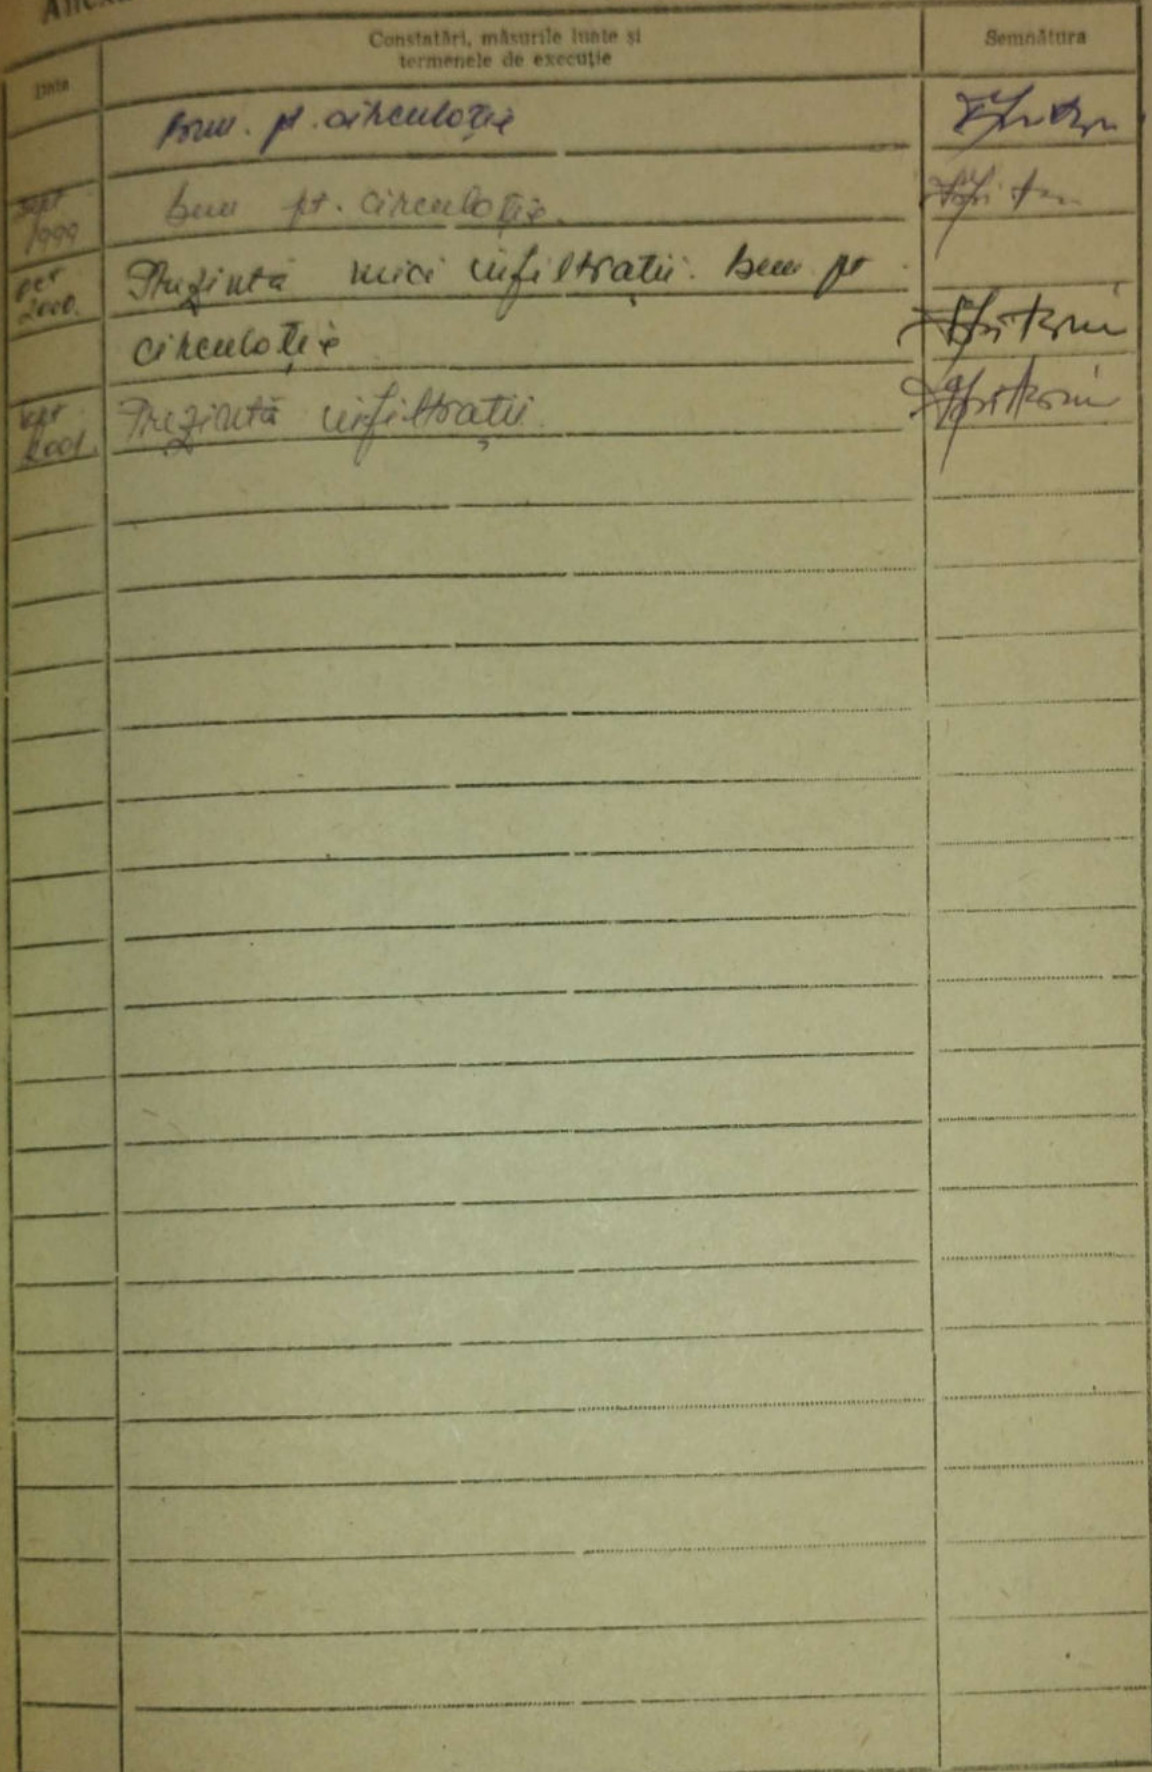 Constatări, măsurile luate și
termenele de execuție
Semnătura
Data
Bun. pt. circulație
sept
1999
Bun pt. circulație.
oct
2000.
Prezintă mici infiltrații. Bun pt
circulație
sept
2001.
Prezintă infiltrații.